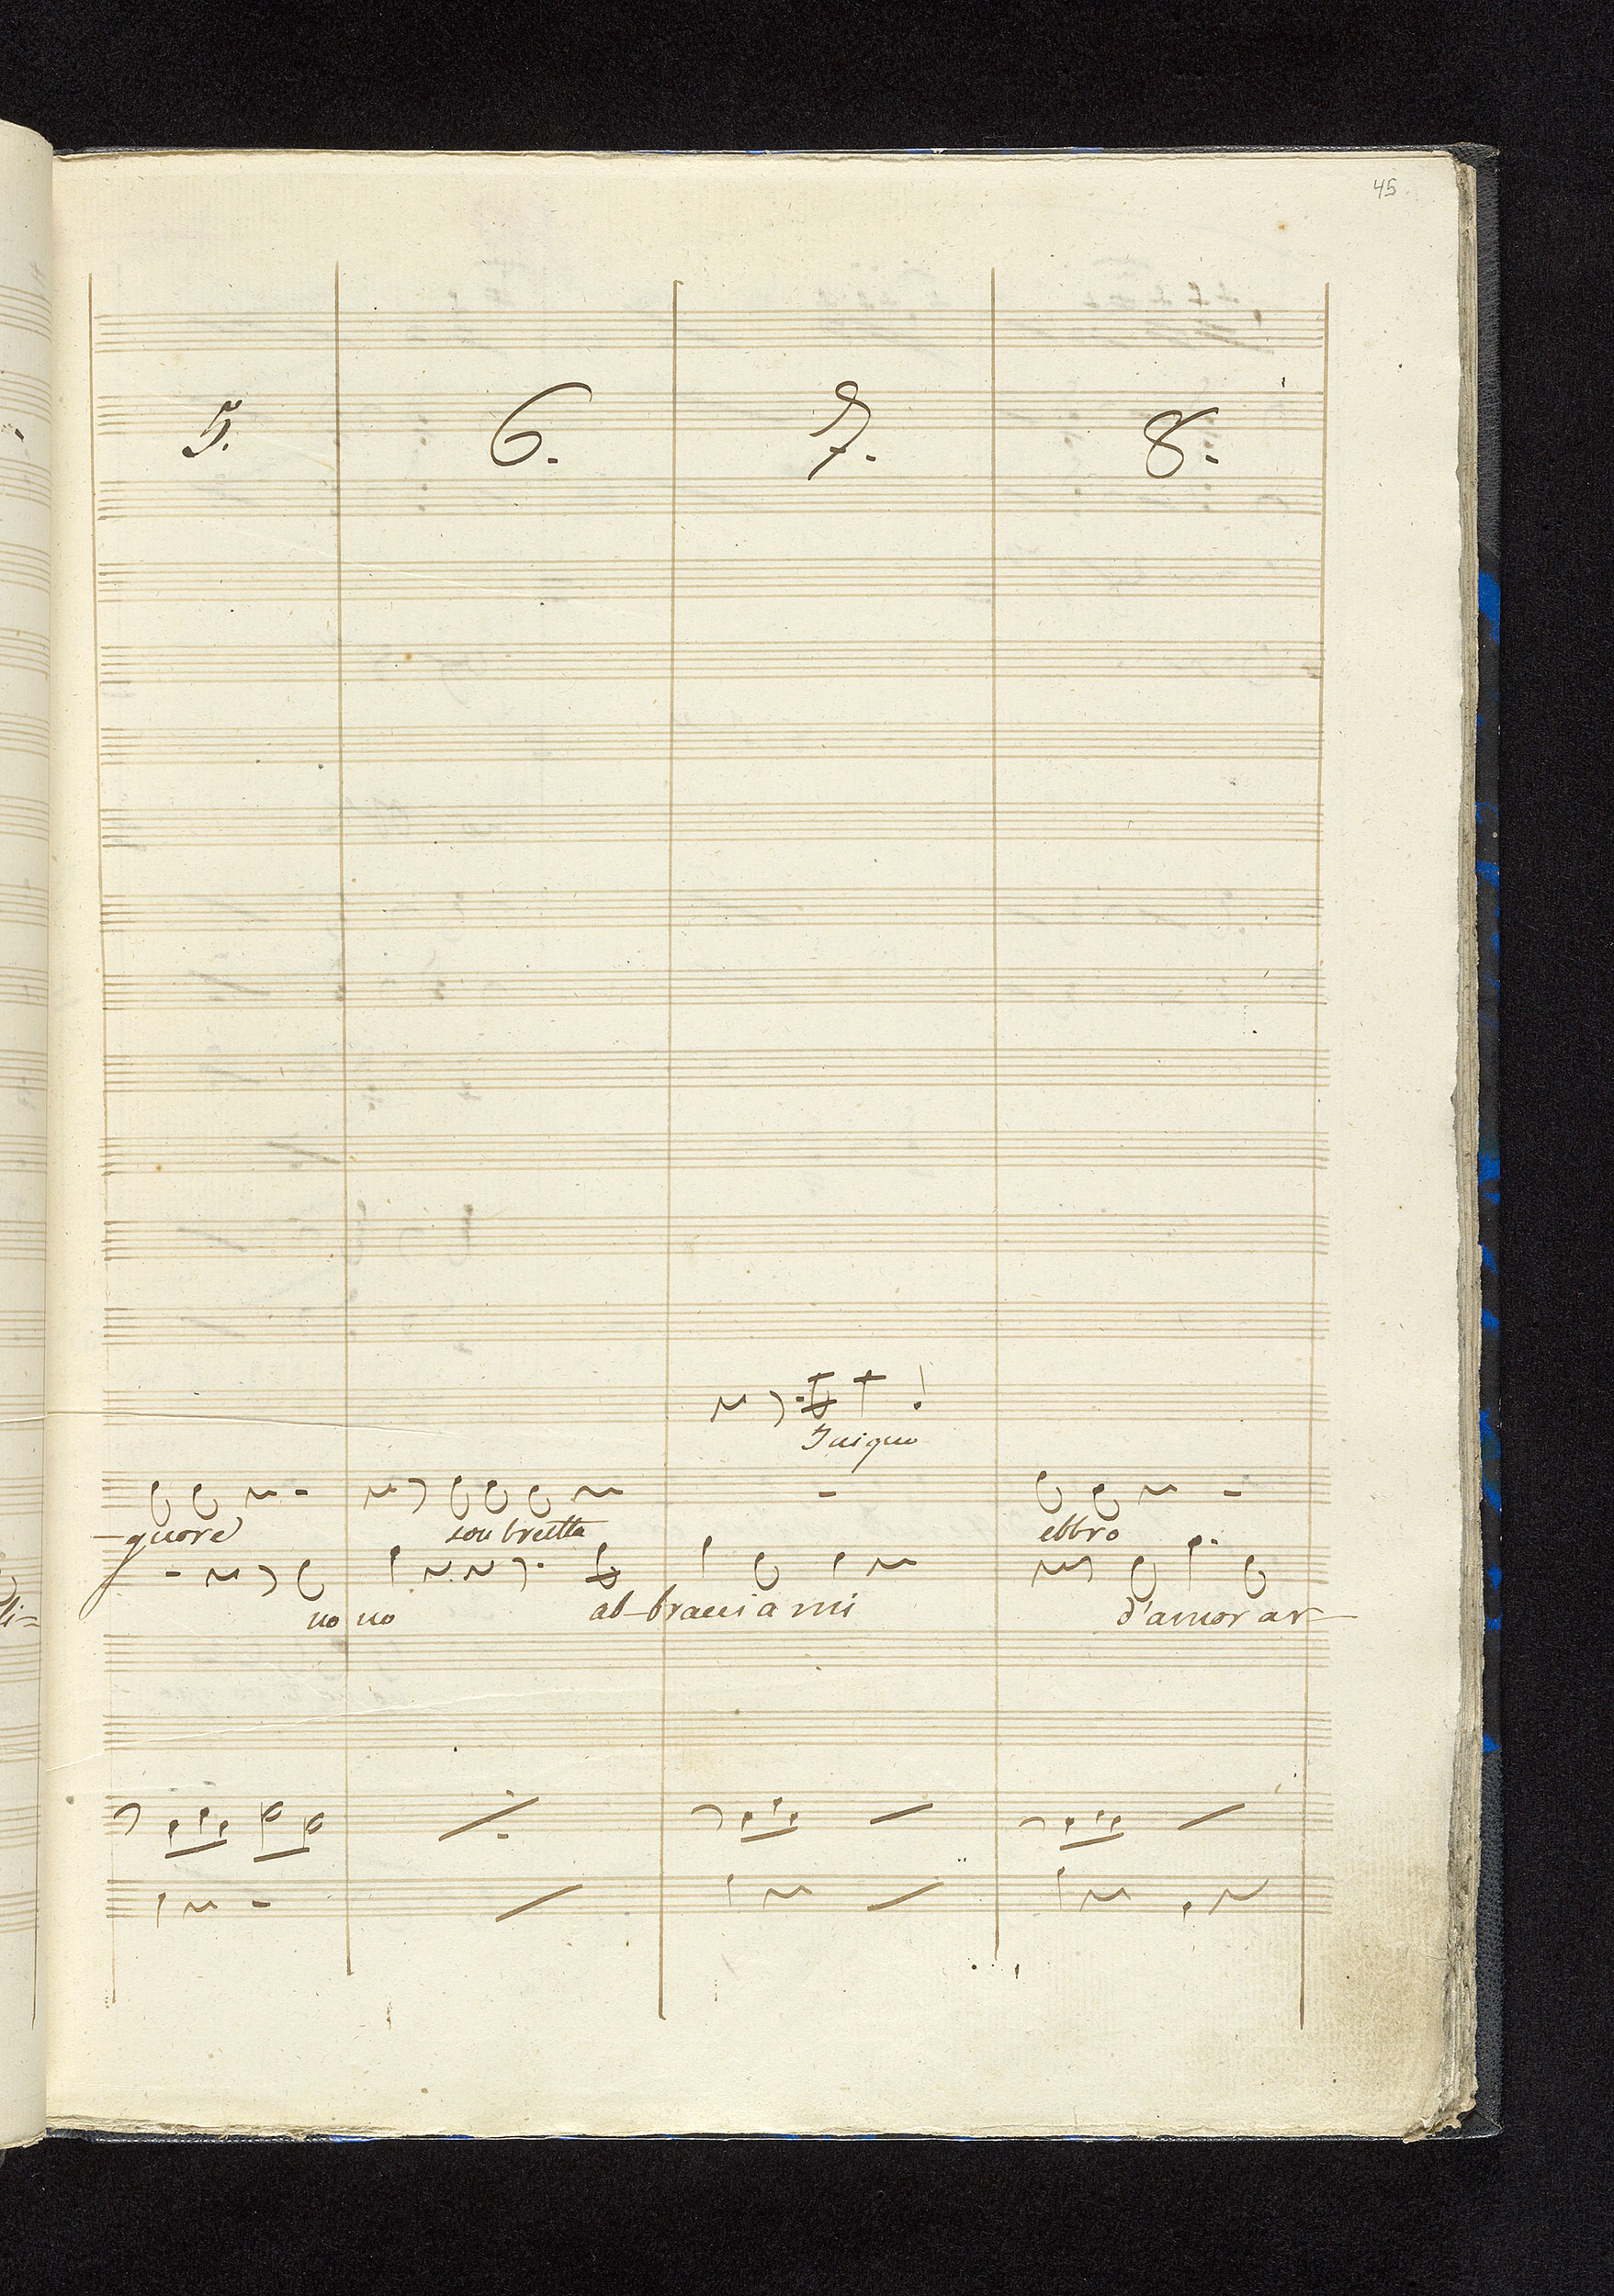 45
5. 6. 7. 8.
Iniquo
-guore son brutta ebbro
li= no no ab-bracciami d'amor ar-